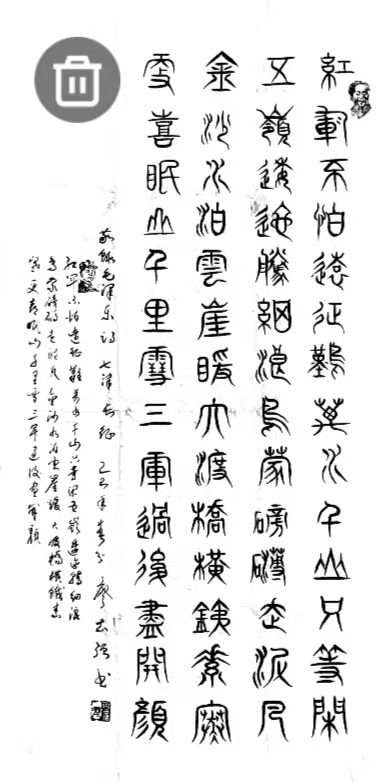 紅軍不怕遠征難萬水千山只等閑
五嶺逶迤騰細浪烏蒙磅礴走泥丸
金沙水泊雲崖暖大渡橋橫鐵索寒
更喜眠山千里雪三軍過後盡開顏
敬錄毛澤東詩 七律長征 乙巳年春分 廖志强书
红军不怕遠征難萬水千山只等闲五嶺逶迤騰細浪
烏蒙磅礴走泥丸金沙水泊雲崖暖大渡橋橫鐵索
寒更喜眠山千里雪三军過後盡開顏